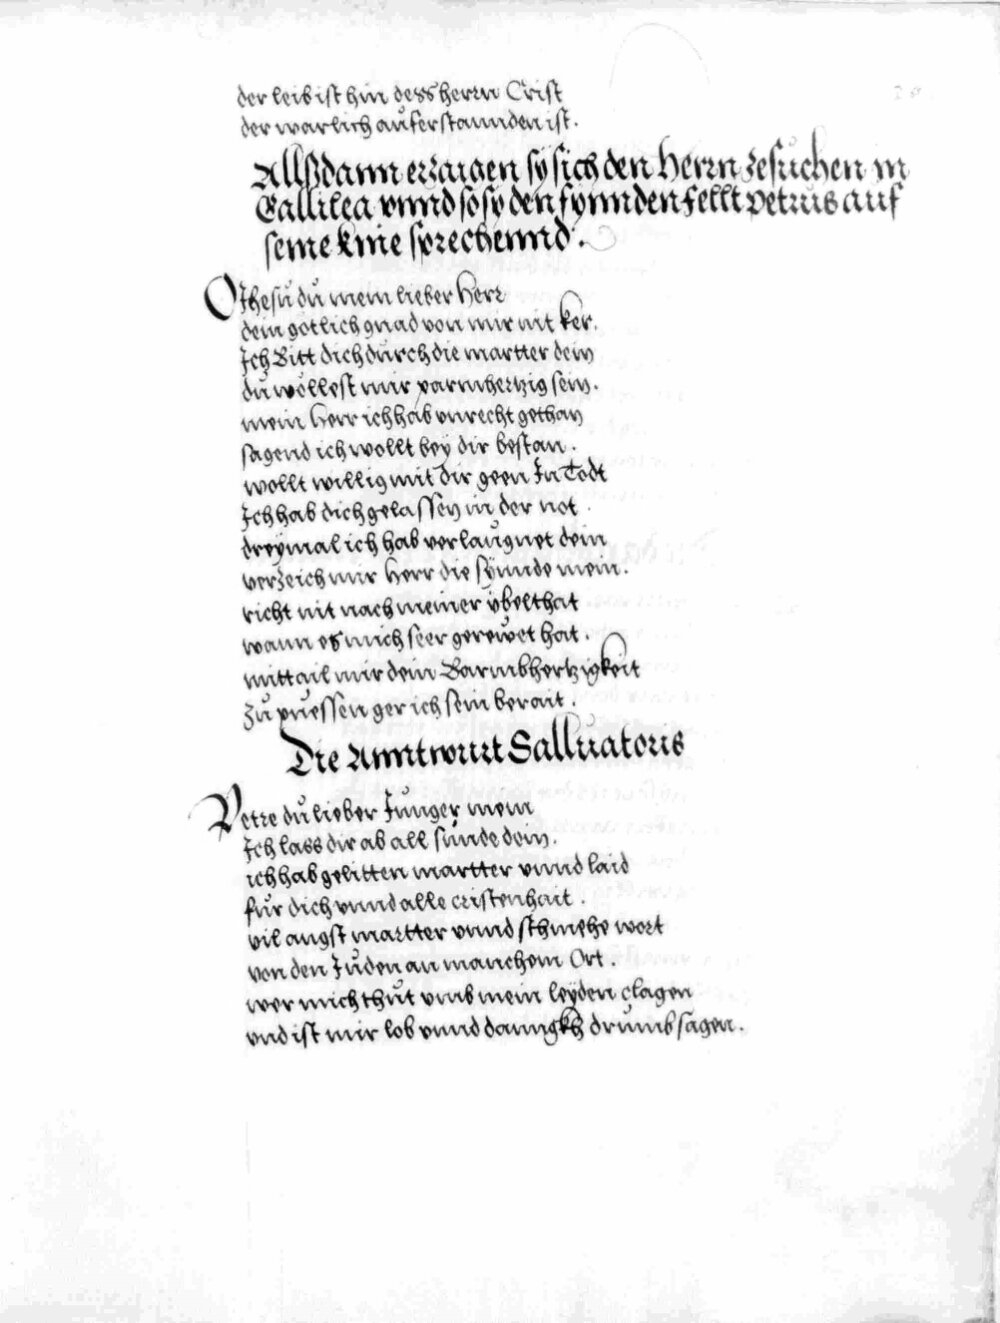 der leib ist hin dess herrn Crist
der warlich aůferstannden ist.
Allßdann erzaigen sÿ sich den Herrn zesůchen in
Gallilea vnnd so sy den fynnden fellt petrus auf
seine knie sprechennd.
O Jhesu dů mein lieber Herr
dein gotlich gnad von mir nit ker.
Ich Bitt dich důrch die martter dein
dů wöllest mir parmhertzig sein.
mein herr ich hab vnrecht gethan
sagend ich wollt beÿ dir bestan.
wollt willig mit dir geen In Todt
Ich hab dich gelassen in der not.
dreÿmal ich hab verlaůgnet dein
verzeich mir herr die sÿnnde mein.
richt nit nach meiner ÿbelthat
wann es mich seer gerewet hat.
mittail mir dein Barmbhertzigkeit
Zů půessen ger ich sein berait.
Die Anntwurt Salluatoris
Petre dů lieber Junger mein
Ich lass dir ab all sünde dein.
ich hab gelitten martter vnnd laid
für dich vnnd alle cristenhait.
vil angst martter vnnd schmehe wort
von den Jůden an manchem Ort.
wer mich thůt vmb mein leÿden clagen
vnd ist mir lob vnnd danngkh drůmb sagen.